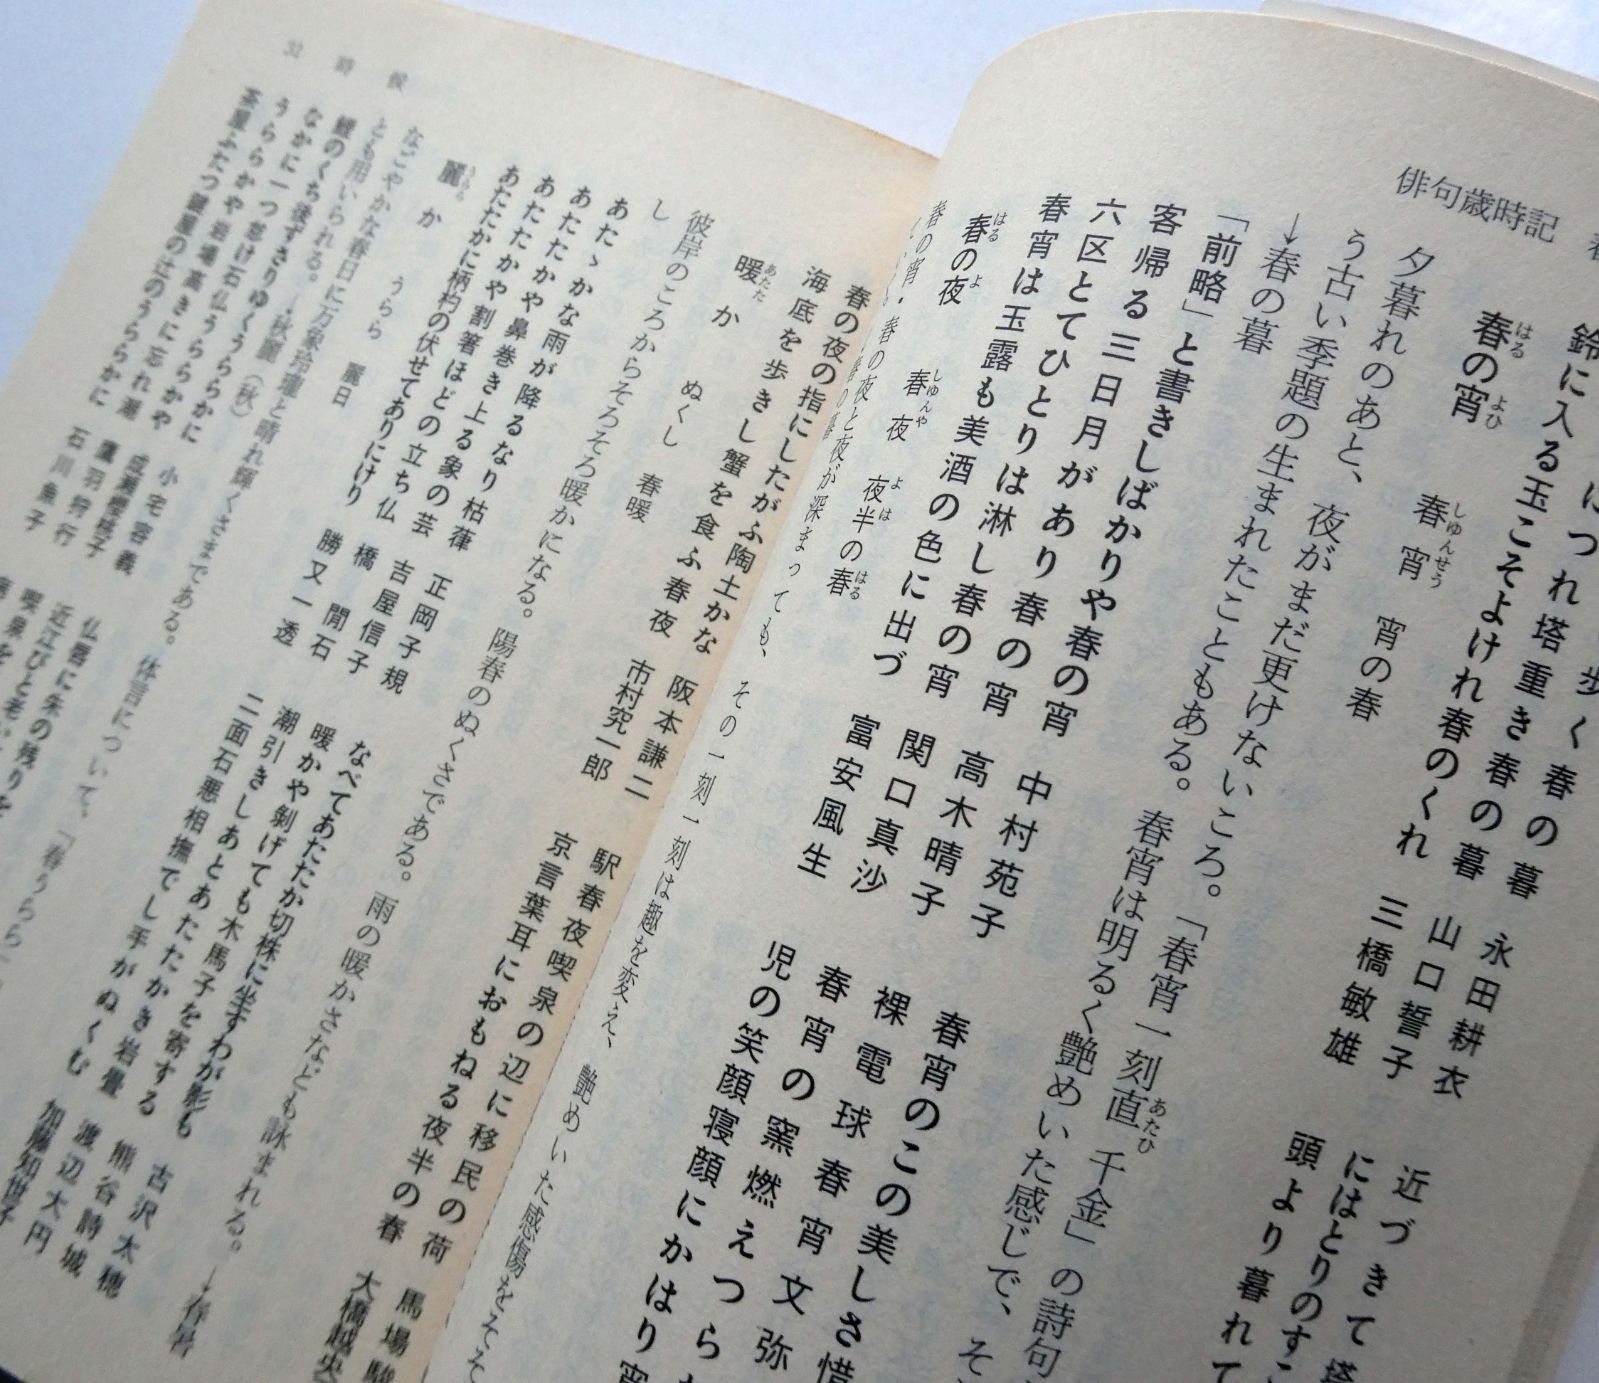 俳句歳時記
鈴に入る玉こそよけれ春のくれ 三橋敏雄
につれ塔重き春の暮 山口誓子
歩く春の暮 永田耕衣
近づきて塔
にはとりのすこ
頭より暮れて
春の宵 春宵 宵の春
夕暮れのあと、夜がまだ更けないころ。「春宵一刻直千金」の詩句
う古い季題の生まれたこともある。春宵は明るく艶めいた感じで、そ
→春の暮
「前略」と書きしばかりや春の宵 中村苑子
客帰る三日月があり春の宵 高木晴子
六区とてひとりは淋し春の宵 関口真沙
春宵は玉露も美酒の色に出づ 富安風生
春宵のこの美しさ惜
裸電球春宵文弥
春宵の窯燃えつら
児の笑顔寝顔にかはり宵
春の夜 春夜 夜半の春
春の宵・春の夜と夜が深まっても、その一刻一刻は趣を変え、艶めいた感傷をそそ
春の夜の指にしたがふ陶土かな 阪本謙二
海底を歩きし蟹を食ふ春夜 市村究一郎
駅春夜喫泉の辺に移民の荷 馬場駿
京言葉耳におもねる夜半の春 大橋越央
暖か ぬくし 春暖
彼岸のころからそろそろ暖かになる。陽春のぬくさである。雨の暖かさなども詠まれる。→春暑
し
あたゝかな雨が降るなり枯葎 正岡子規
あたたかや鼻巻き上る象の芸 吉屋信子
あたたかや割箸ほどの立ち仏 橋閒石
あたたかに柄杓の伏せてありにけり 勝又一透
なべてあたたか切株に坐すわが影も 古沢太穂
暖かや剝げても木馬子を寄する 熊谷詩城
潮引きしあとあたたかき岩畳 渡辺大円
二面石悪相撫でし手がぬくむ 加藤知世子
麗か うらら 麗日
なごやかな春日に万象玲瓏と晴れ輝くさまである。体言について、「春うらら
とも用いられる。→秋麗(秋)
鯉のくち後ずさりゆくうららかに 小宅容義
なかに一つ怠け石仏うららかや 成瀬櫻桃子
うららかや岩場高きに忘れ潮 鷹羽狩行
茶屋ふたつ鍵屋の辻のうららかに 石川魚子
仏唇に朱の残りを
近江びと老い
喫泉を
31 時候